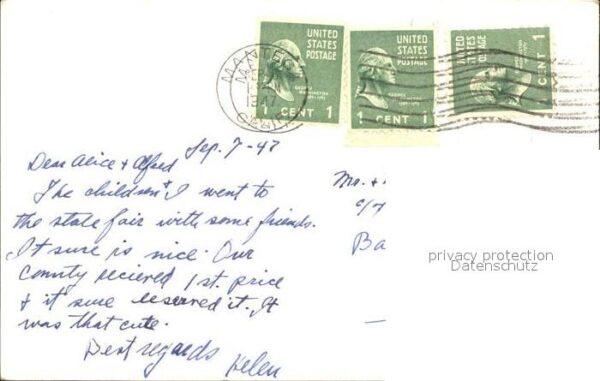 UNITED
STATES
POSTAGE
GEORGE
WASHINGTON
1 CENT 1
UNITED
STATES
POSTAGE
GEORGE
WASHINGTON
1 CENT 1
UNITED
STATES
POSTAGE
1 CENT 1
MANTECA
1947
CALIF.
Sep. 7-47
Dear Alice & Alfred
The children & I went to
the state fair with some friends.
It sure is nice. Our
County recieved 1st. price
& it sure deserved it. It
was that cute.
Best regards
Helen
Mr. &
c/o
Ba
privacy protection
Datenschutz